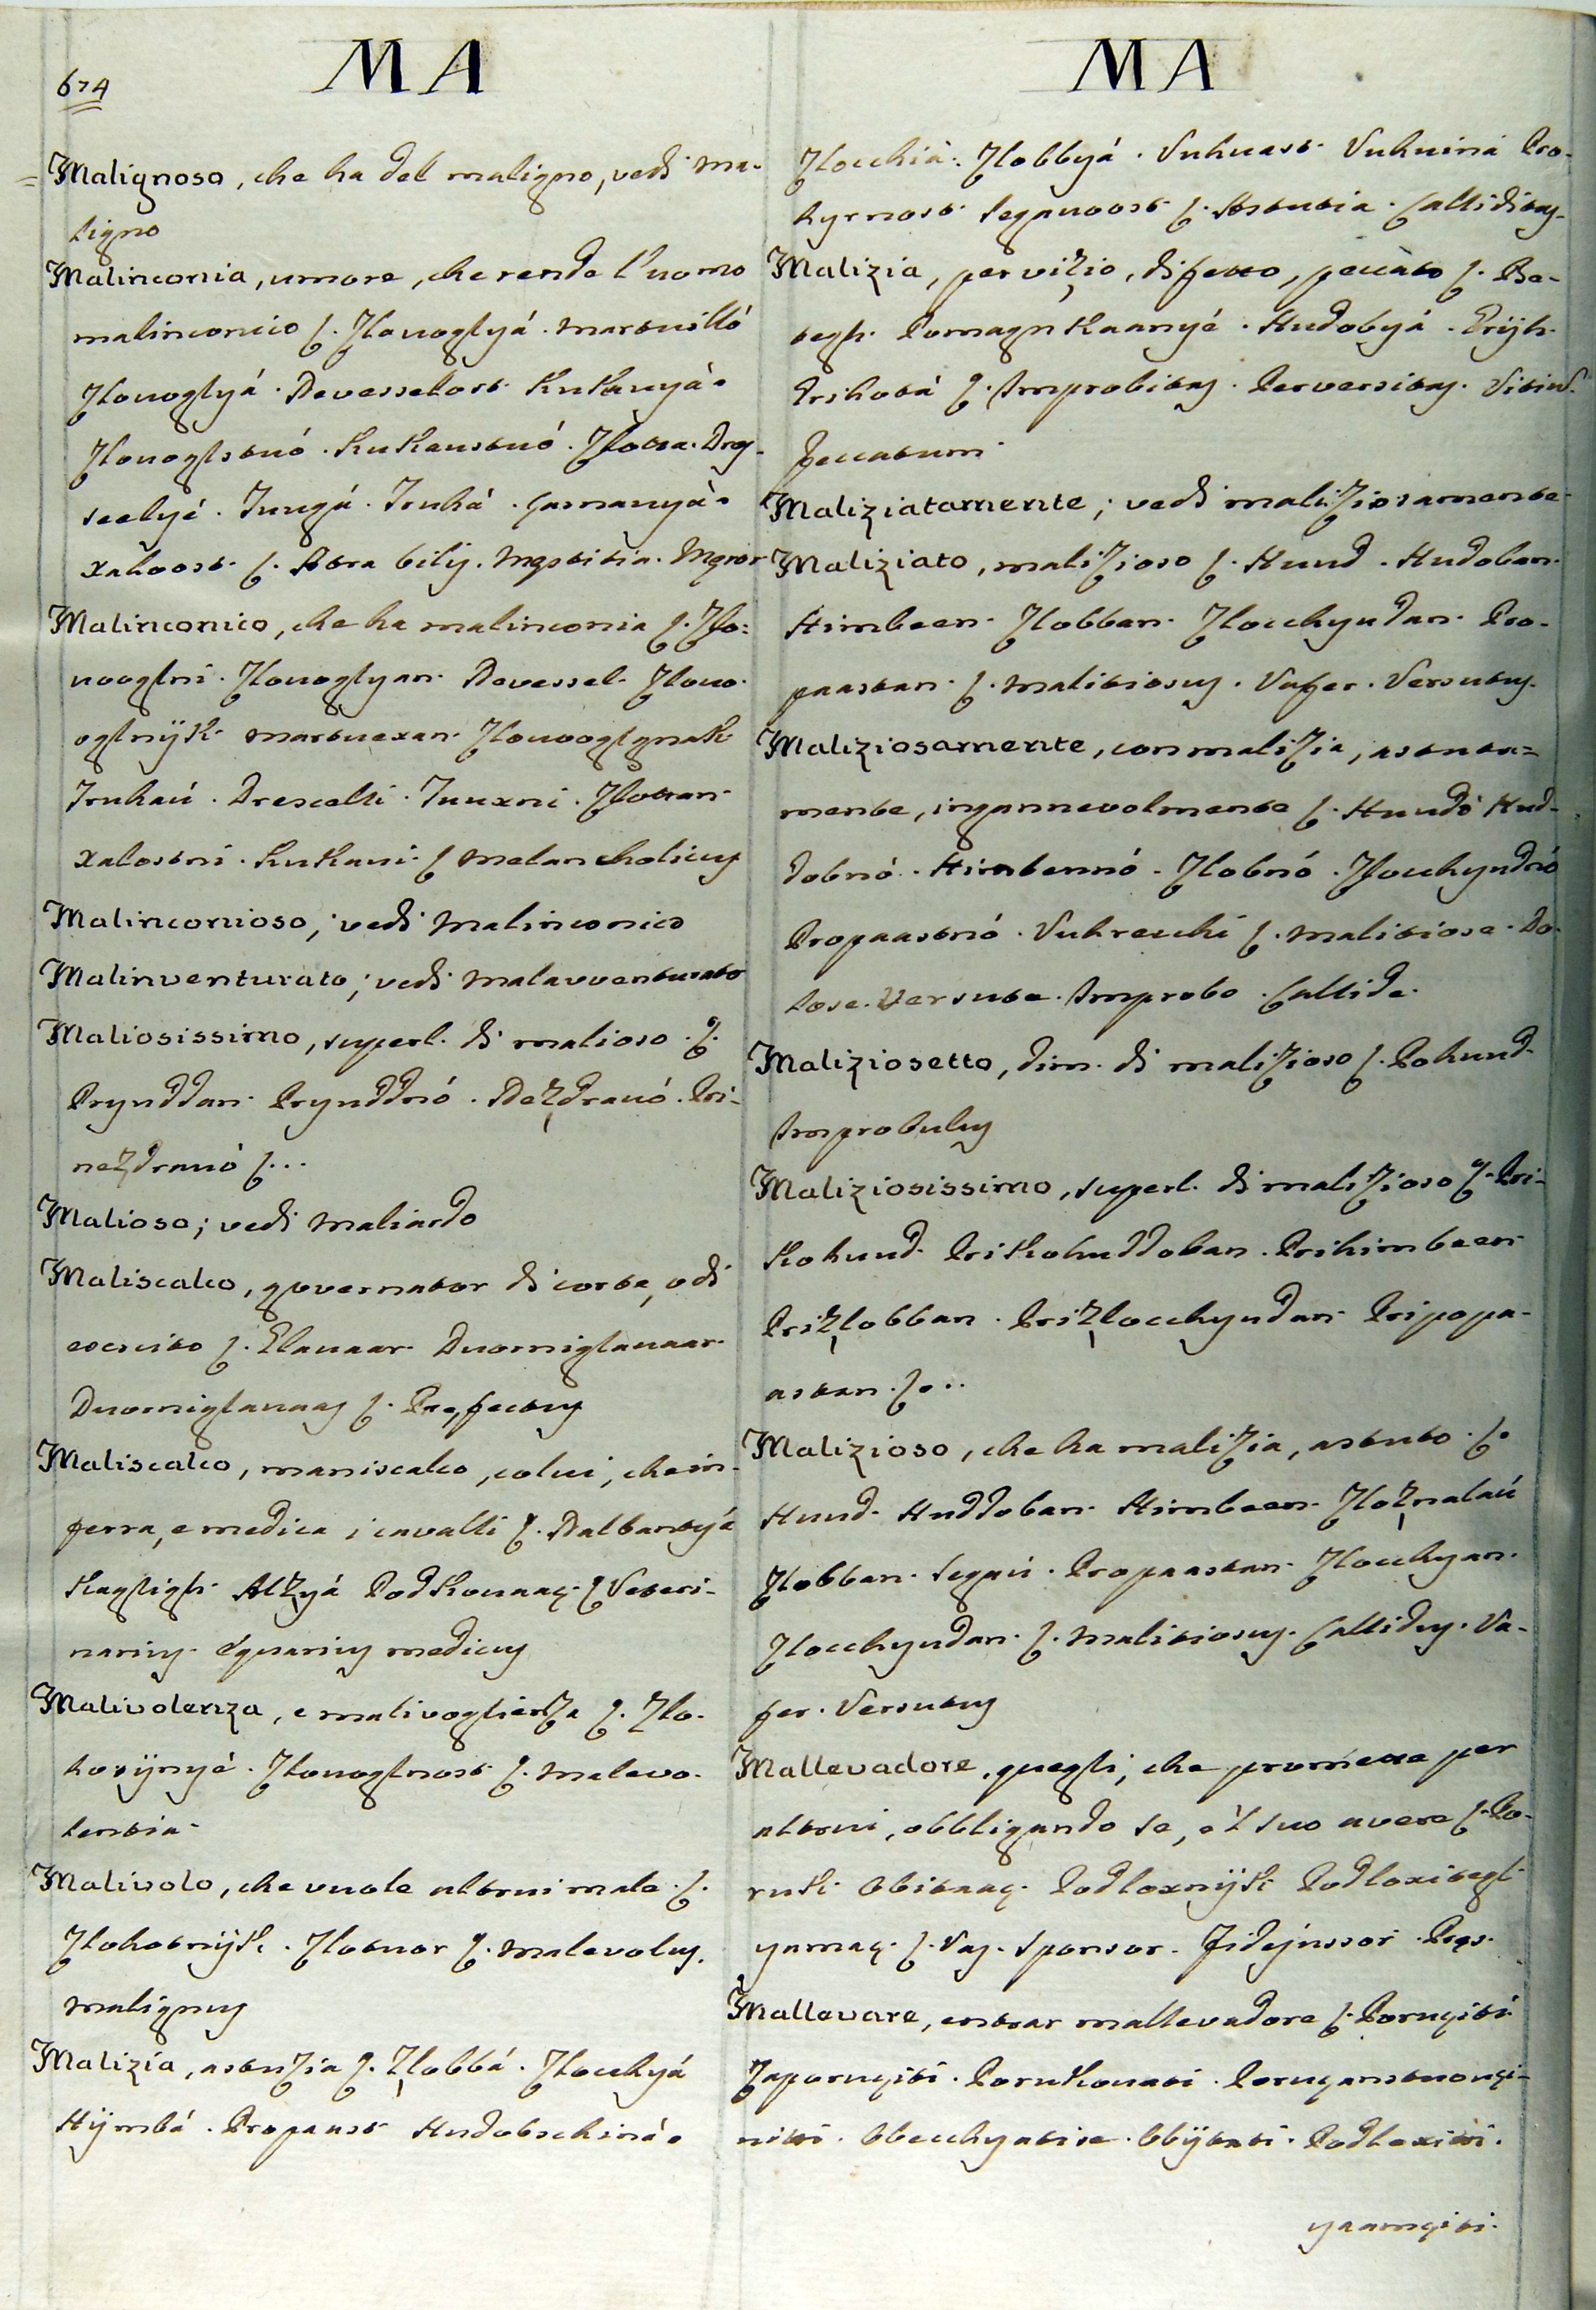 674
MA
Malignoso, che ha del maligno, vedi ma-
ligno
Malinconia, umore, che rende l'uomo
malinconico ʃ. Zlovoglyá. martvilló
Zlovoglyá. Devesselost. KuKavyá.
Zlovoglstvó. KuKavstvó. Zlotta. Drey-
seelyé. Tuugá. Truhá.
xaloost. ʃ. Atra bilis. Mæstitia. Mæror
Malinconico, che ha malinconia ʃ. Zlo-
vooglni. Zlovoglyan. Devessel. Zlovo-
oglnijK. martvexan. ZlovooglgnaK.
Truhaú. Drescelli. Tuuxni. Zlottan.
xalostni. KuKavi. ʃ Melancholicus
Malinconioso; vedi Malinconico
Malinventurato; vedi Malavventurato
Maliosissimo, superl. di malioso. ʃ.
Pryuddan. Pryuddnó. Dezdravó. Pri-
nezdravó ʃ...
Malioso; vedi Maliardo
Maliscalco, governator di corte, o di
esercito ʃ. Elavaar. Dvorniglavaar.
Dvorniglavaas ʃ. Præfectus
Maliscalco, maniscalco, colui, che in-
ferra, e medica i cavalli ʃ. Balbantyá
Kagligh. Alzyá PodKovaaç. ʃ Veteri-
narius. Equarius medicus
Malivolenza, e malivoglienza ʃ. Zlo-
hotijnyé. Zlovoglnost ʃ. Malevo-
lentia.
Malivolo, che vuole altrui male. ʃ.
ZlohotnijK. Zlotvor ʃ. Malevolus.
malignus
Malizia, astuzia ʃ. Zlobbá. Zlocchyá
Hijmbá. Propaast Hudobschiná.
MA
Zlocchiá. Zlobbyá. Vuhvast. Vuhviná Pro-
hyrnost. Legavost ʃ. Astutia. Calliditas.
Malizia, per vizio, difetto, peccato ʃ. Be-
tegh. PomagnKaanyé. Hudobyá. Grijh.
Prihotá ʃ. Improbitas. Perversitas. Vitium.
peccatum
Maliziatamente; vedi maliziosamente
Maliziato, malizioso ʃ. Huud. Hudoban.
Himbeen. Zlobban. Zlocchyudan. Pro-
paastan. ʃ. malitiosus. Vafer. Versutus.
Maliziosamente, con malizia, astuta-
mente, ingannevolmente ʃ. Huudó Hud-
dobnó. Himbennó. Zlobnó. Zlocchyudnó
Propaastnó. Vuhrecchi ʃ. malitiose. Do-
lose. Versute. Improbo. Callide.
Maliziosetto, dim. di malizioso ʃ. Pohuud.
Improbulus
Maliziosissimo, superl. di malizioso ʃ. Pri-
Kohuud. PriKohuddoban. Prihimbeen
Prizlobban. Prizlocchyudan. Pripopa-
astan. ʃ...
Malizioso, che ha malizia, astuto. ʃ.
Huud. Huddoban. Himbeen. Zloznalaú
Zlobban. Legaú. Propaastan. Zlocchyan.
Zlocchyudan. ʃ. Malitiosus. Callidus. Va-
fer. Versutus
Mallevadore, quegli, che promette per
altrui, obbligando se, e 'l suo avere ʃ. Po-
ruK. Obitaaç. PodloxnijK. Podloxitegl
yamaç. ʃ. Vas. Sponsor. Fidejussor. Præs.
Mallevare, entrar mallevadore ʃ. Poruçiti
Zaporuçiti. PoruKovati. Poruçanstvouçi-
niti. Obecchyatise. Obijtati. Podloxiti.
yaamçiti.